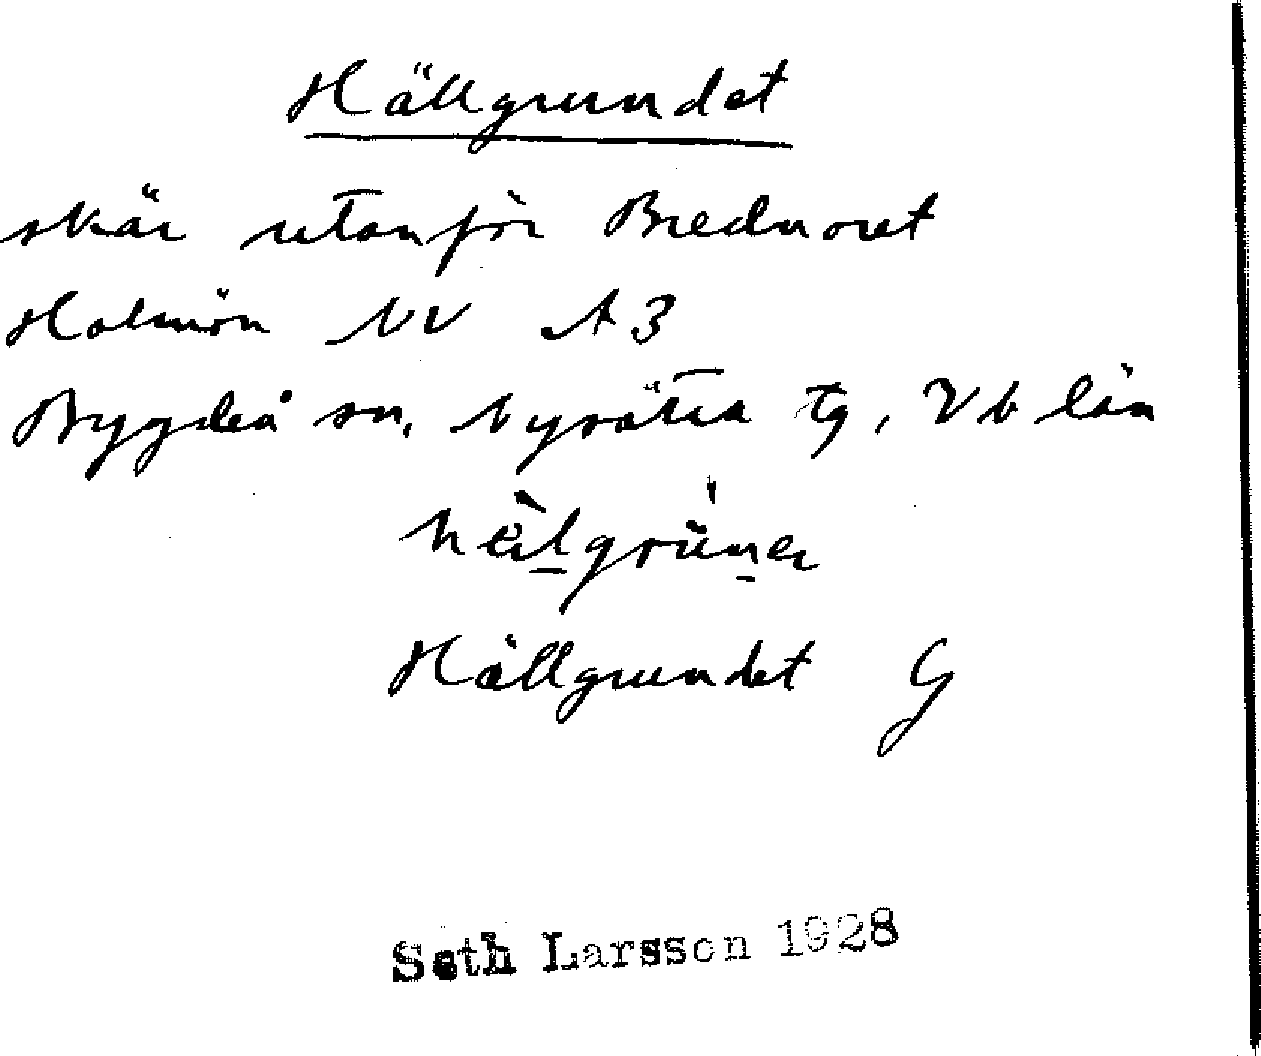 Hällgrundet
skär utanför Brednoret
Holmön NV A3
Bygdeå sn, Nysätra tg, Vb län
Hällgrundet G
Seth Larsson 1928